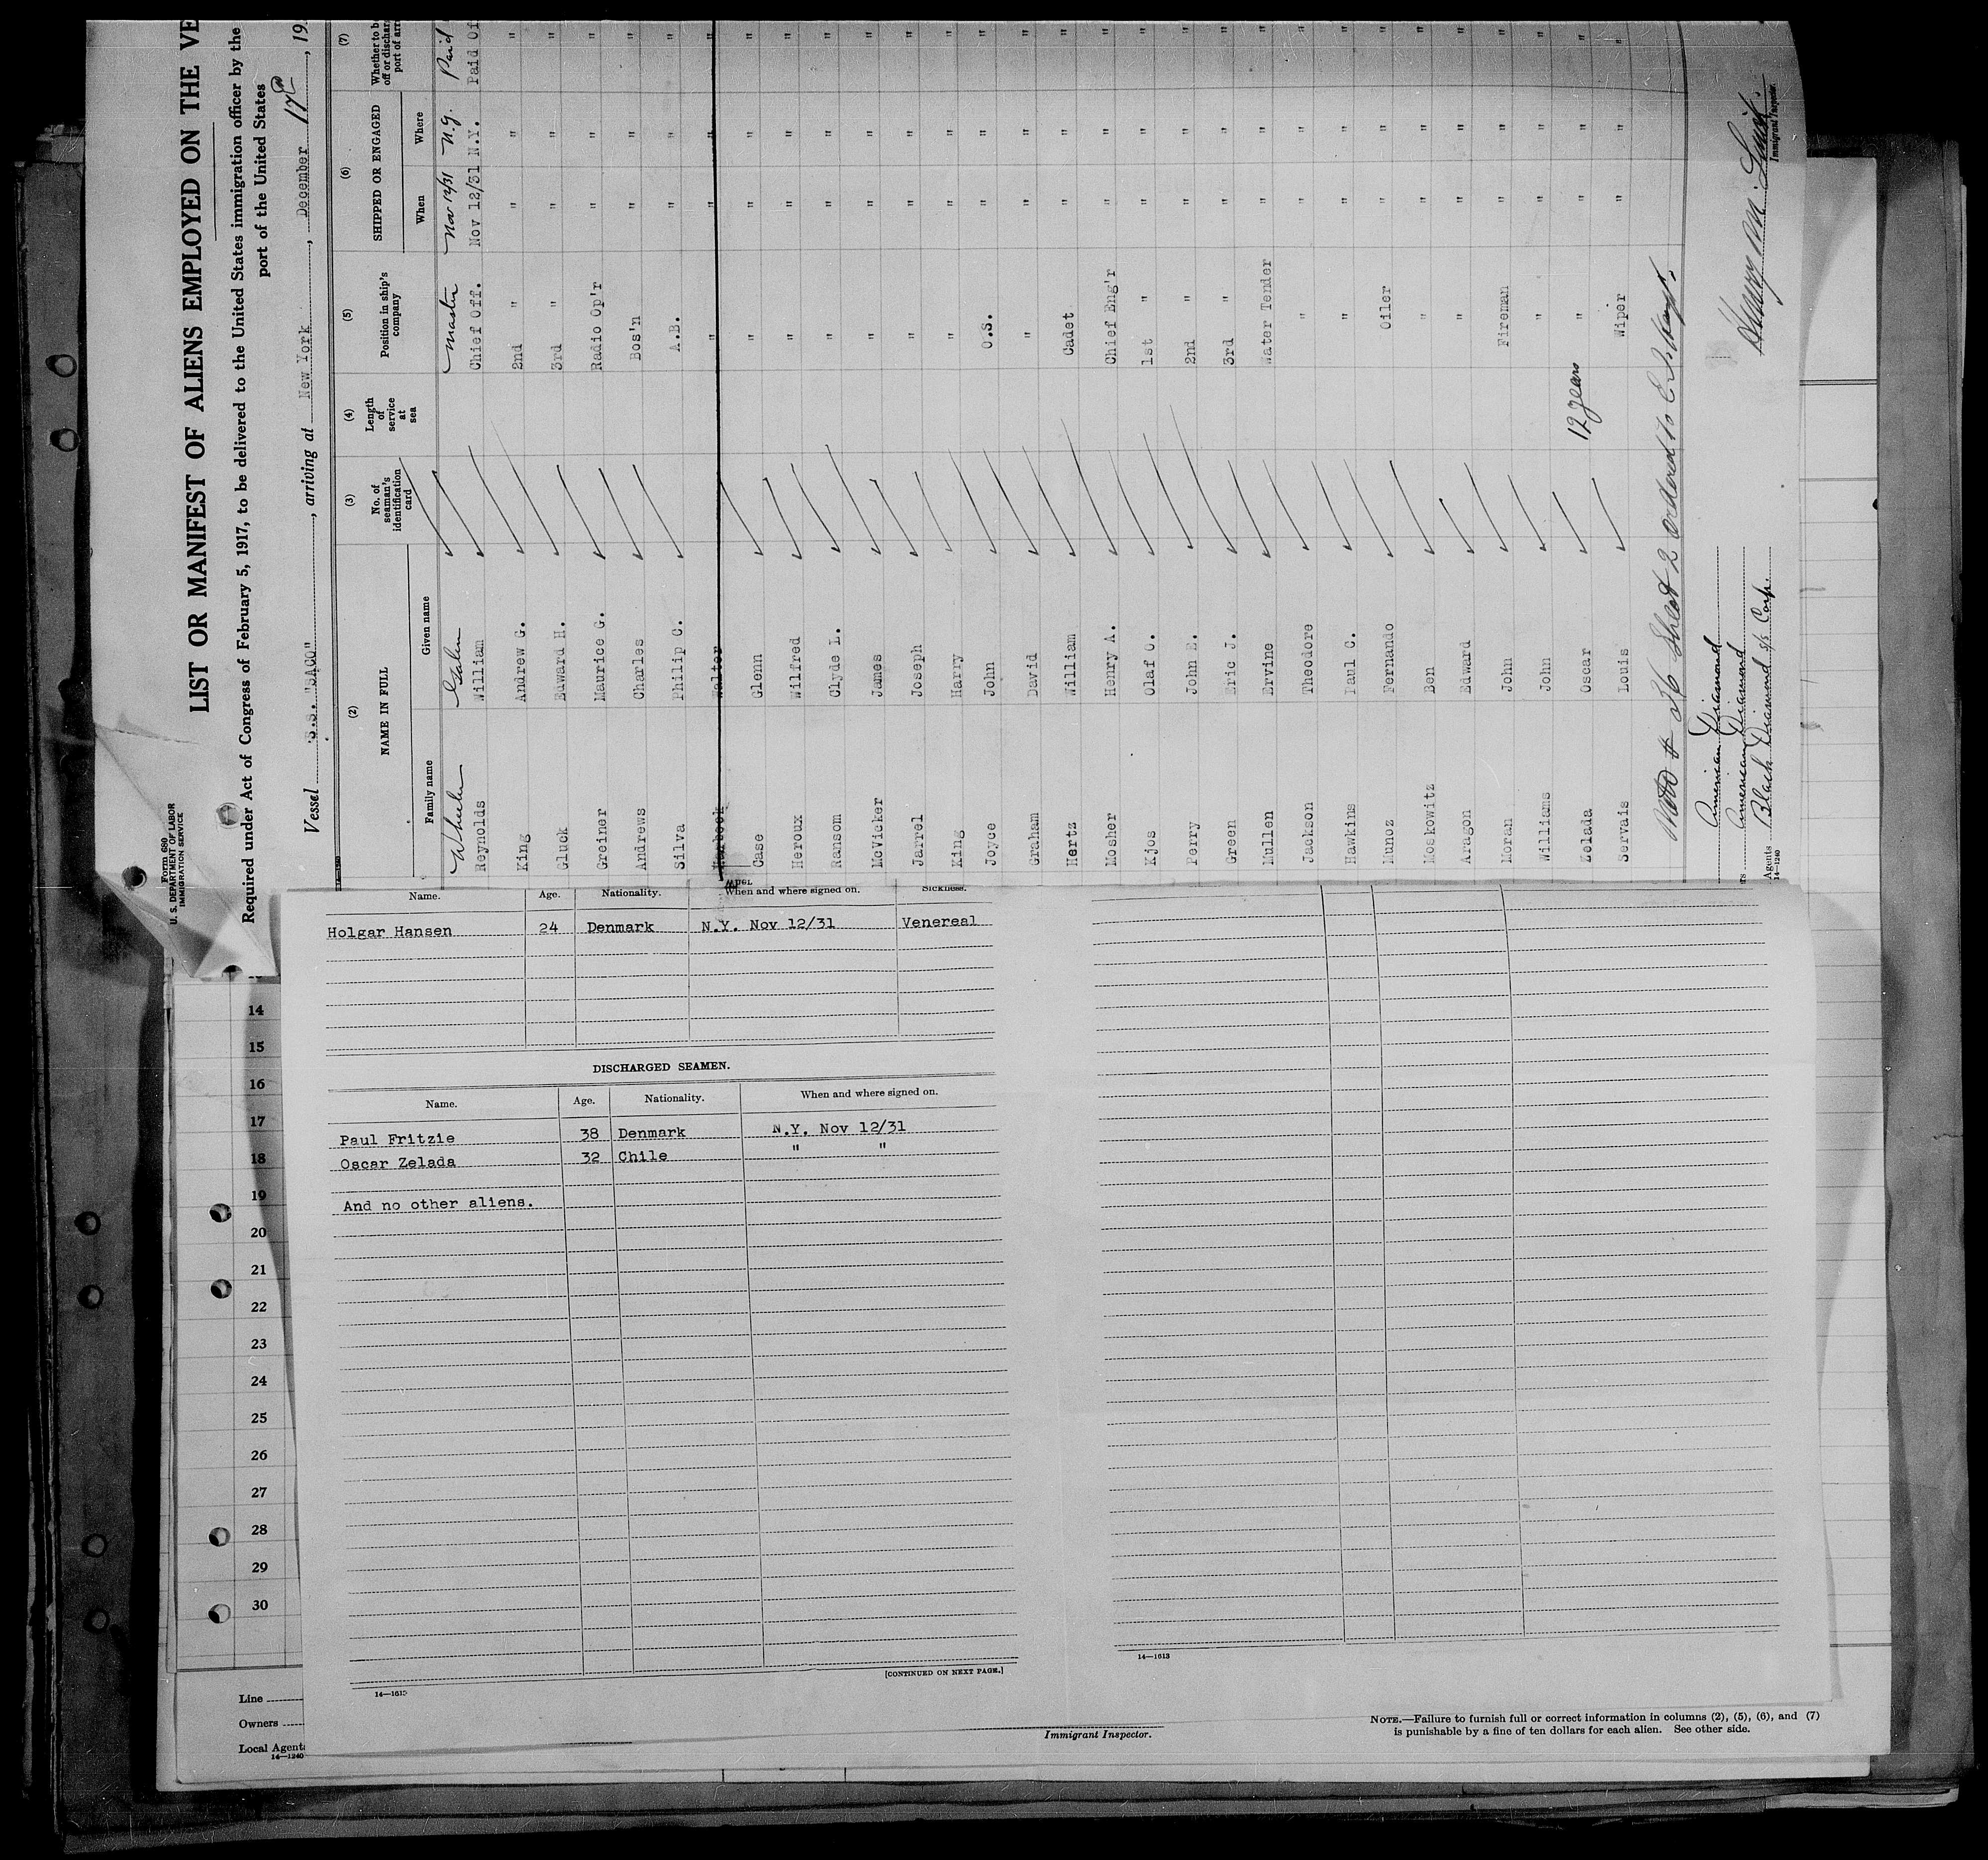 Form 680
U. S. DEPARTMENT OF LABOR
IMMIGRATION SERVICE
LIST OR MANIFEST OF ALIENS EMPLOYED ON THE VE
Required under Act of Congress of February 5, 1917, to be delivered to the United States immigration officer by the
port of the United States
Vessel S.S. "SACO", arriving at New York, December 17th, 19
(2) (3) (4) (5) (6) (7)
NAME IN FULL No. of seaman's identification card Length of service at sea Position in ship's company SHIPPED OR ENGAGED Whether to b off or dischar port of arr
Family name Given name When Where
Wheeler John Master Nov 12/31 N.Y. Paid
Reynolds William Chief Off. Nov 12/31 N.Y. Paid Of
King Andrew G. 2nd " " " "
Gluck Edward H. 3rd " " " "
Greiner Maurice G. Radio Op'r " " "
Andrews Charles Bos'n " " "
Silva Philip C. A.B. " " "
Walter " " " "
Case Glenn " " " "
Heroux Wilfred " " " "
Ransom Clyde L. " " " "
McVicker James " " " "
Jarrel Joseph " " " "
King Harry " " " "
Joyce John O.S. " " "
Graham David " " " "
Hertz William Cadet " " "
Mosher Henry A. Chief Eng'r " " "
Kjos Olaf O. 1st " " " "
Perry John E. 2nd " " " "
Green Eric J. 3rd " " " "
Mullen Ervine Water Tender " " "
Jackson Theodore " " " "
Hawkins Paul C. " " " "
Munoz Fernando Oiler " " "
Moskowitz Ben " " " "
Aragon Edward " " " "
Moran John Fireman " " "
Williams John " " " "
Zelada Oscar 12 years " " " "
Servais Louis Wiper " " "
# 36 Sheet 2 ordered to
American Diamond
American Diamond
Agents Black Diamond S/S Corp.
14—1240
Immigrant Inspector.
Name. Age. Nationality. When and where signed on. Sickness.
Holgar Hansen 24 Denmark N.Y. Nov 12/31 Venereal
DISCHARGED SEAMEN.
Name. Age. Nationality. When and where signed on.
Paul Fritzie 38 Denmark N.Y. Nov 12/31
Oscar Zelada 32 Chile " "
And no other aliens.
[CONTINUED ON NEXT PAGE.]
14—1613
14—1613
14
15
16
17
18
19
20
21
22
23
24
25
26
27
28
29
30
Line
Owners
Local Agent
14—1240
Immigrant Inspector.
NOTE.—Failure to furnish full or correct information in columns (2), (5), (6), and (7)
is punishable by a fine of ten dollars for each alien. See other side.